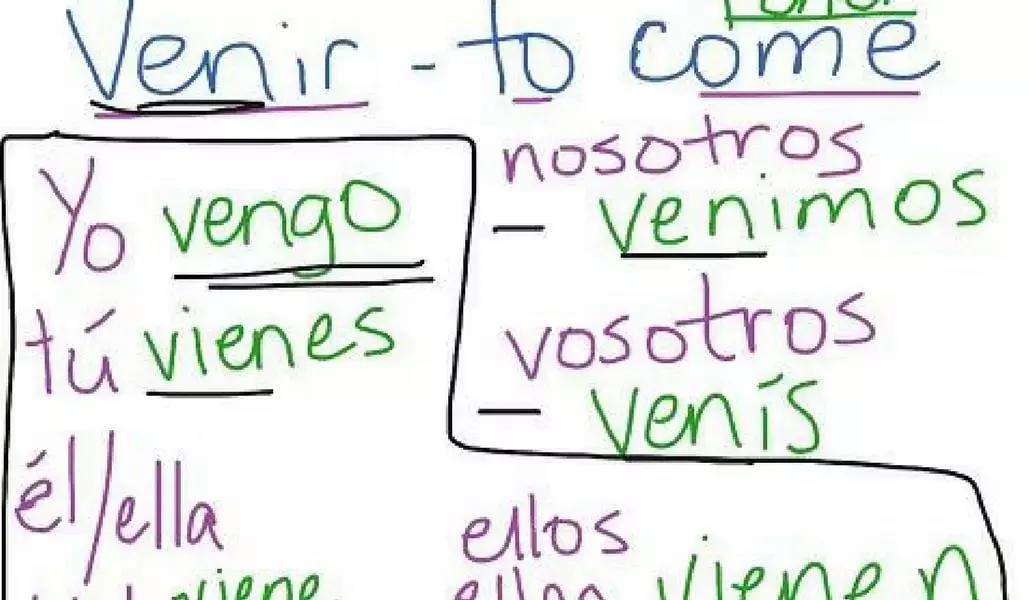 Venir - to come
Yo vengo
tú vienes
él/ella
viene
nosotros
- venimos
vosotros
- venís
ellos
vienen